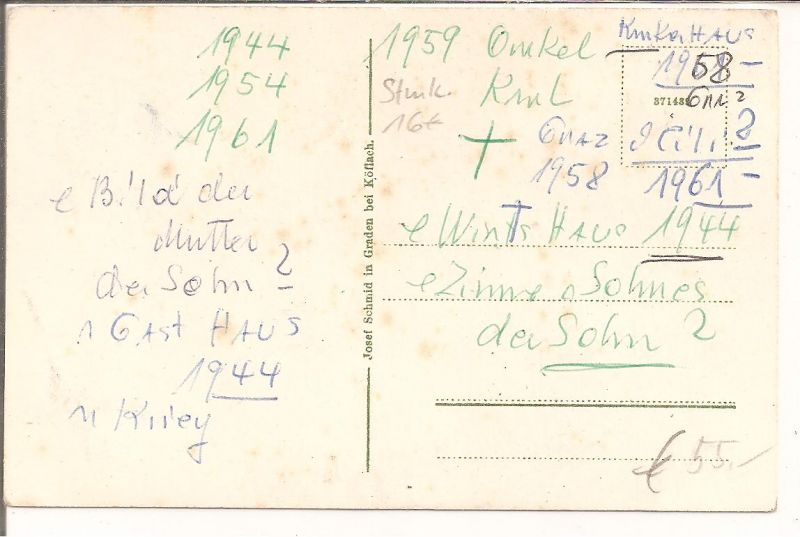 1944
1954
1961
e Bild der
Mutter
der Sohn ?
n Gast HAUS
1944
n Krieg
Josef Schmid in Graden bei Köflach.
1959 Onkel
Karl
Stmk.
16€
HAUS
1958 -
37148
GRAZ
1958
?
1961 -
e Wirts HAUS 1944
e Zimme Sohnes
der Sohn ?
€ 55.-